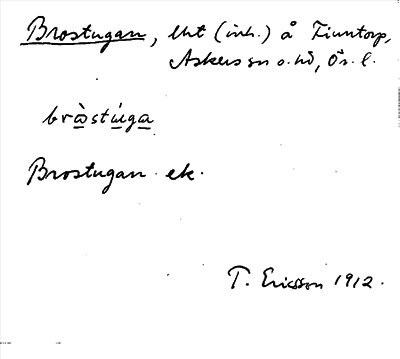 Brostugan, lht (inh.) å Finntorp,
Askers sn o. hd, Ör. l.
bràstúga
Brostugan ek.
T. Ericsson 1912.